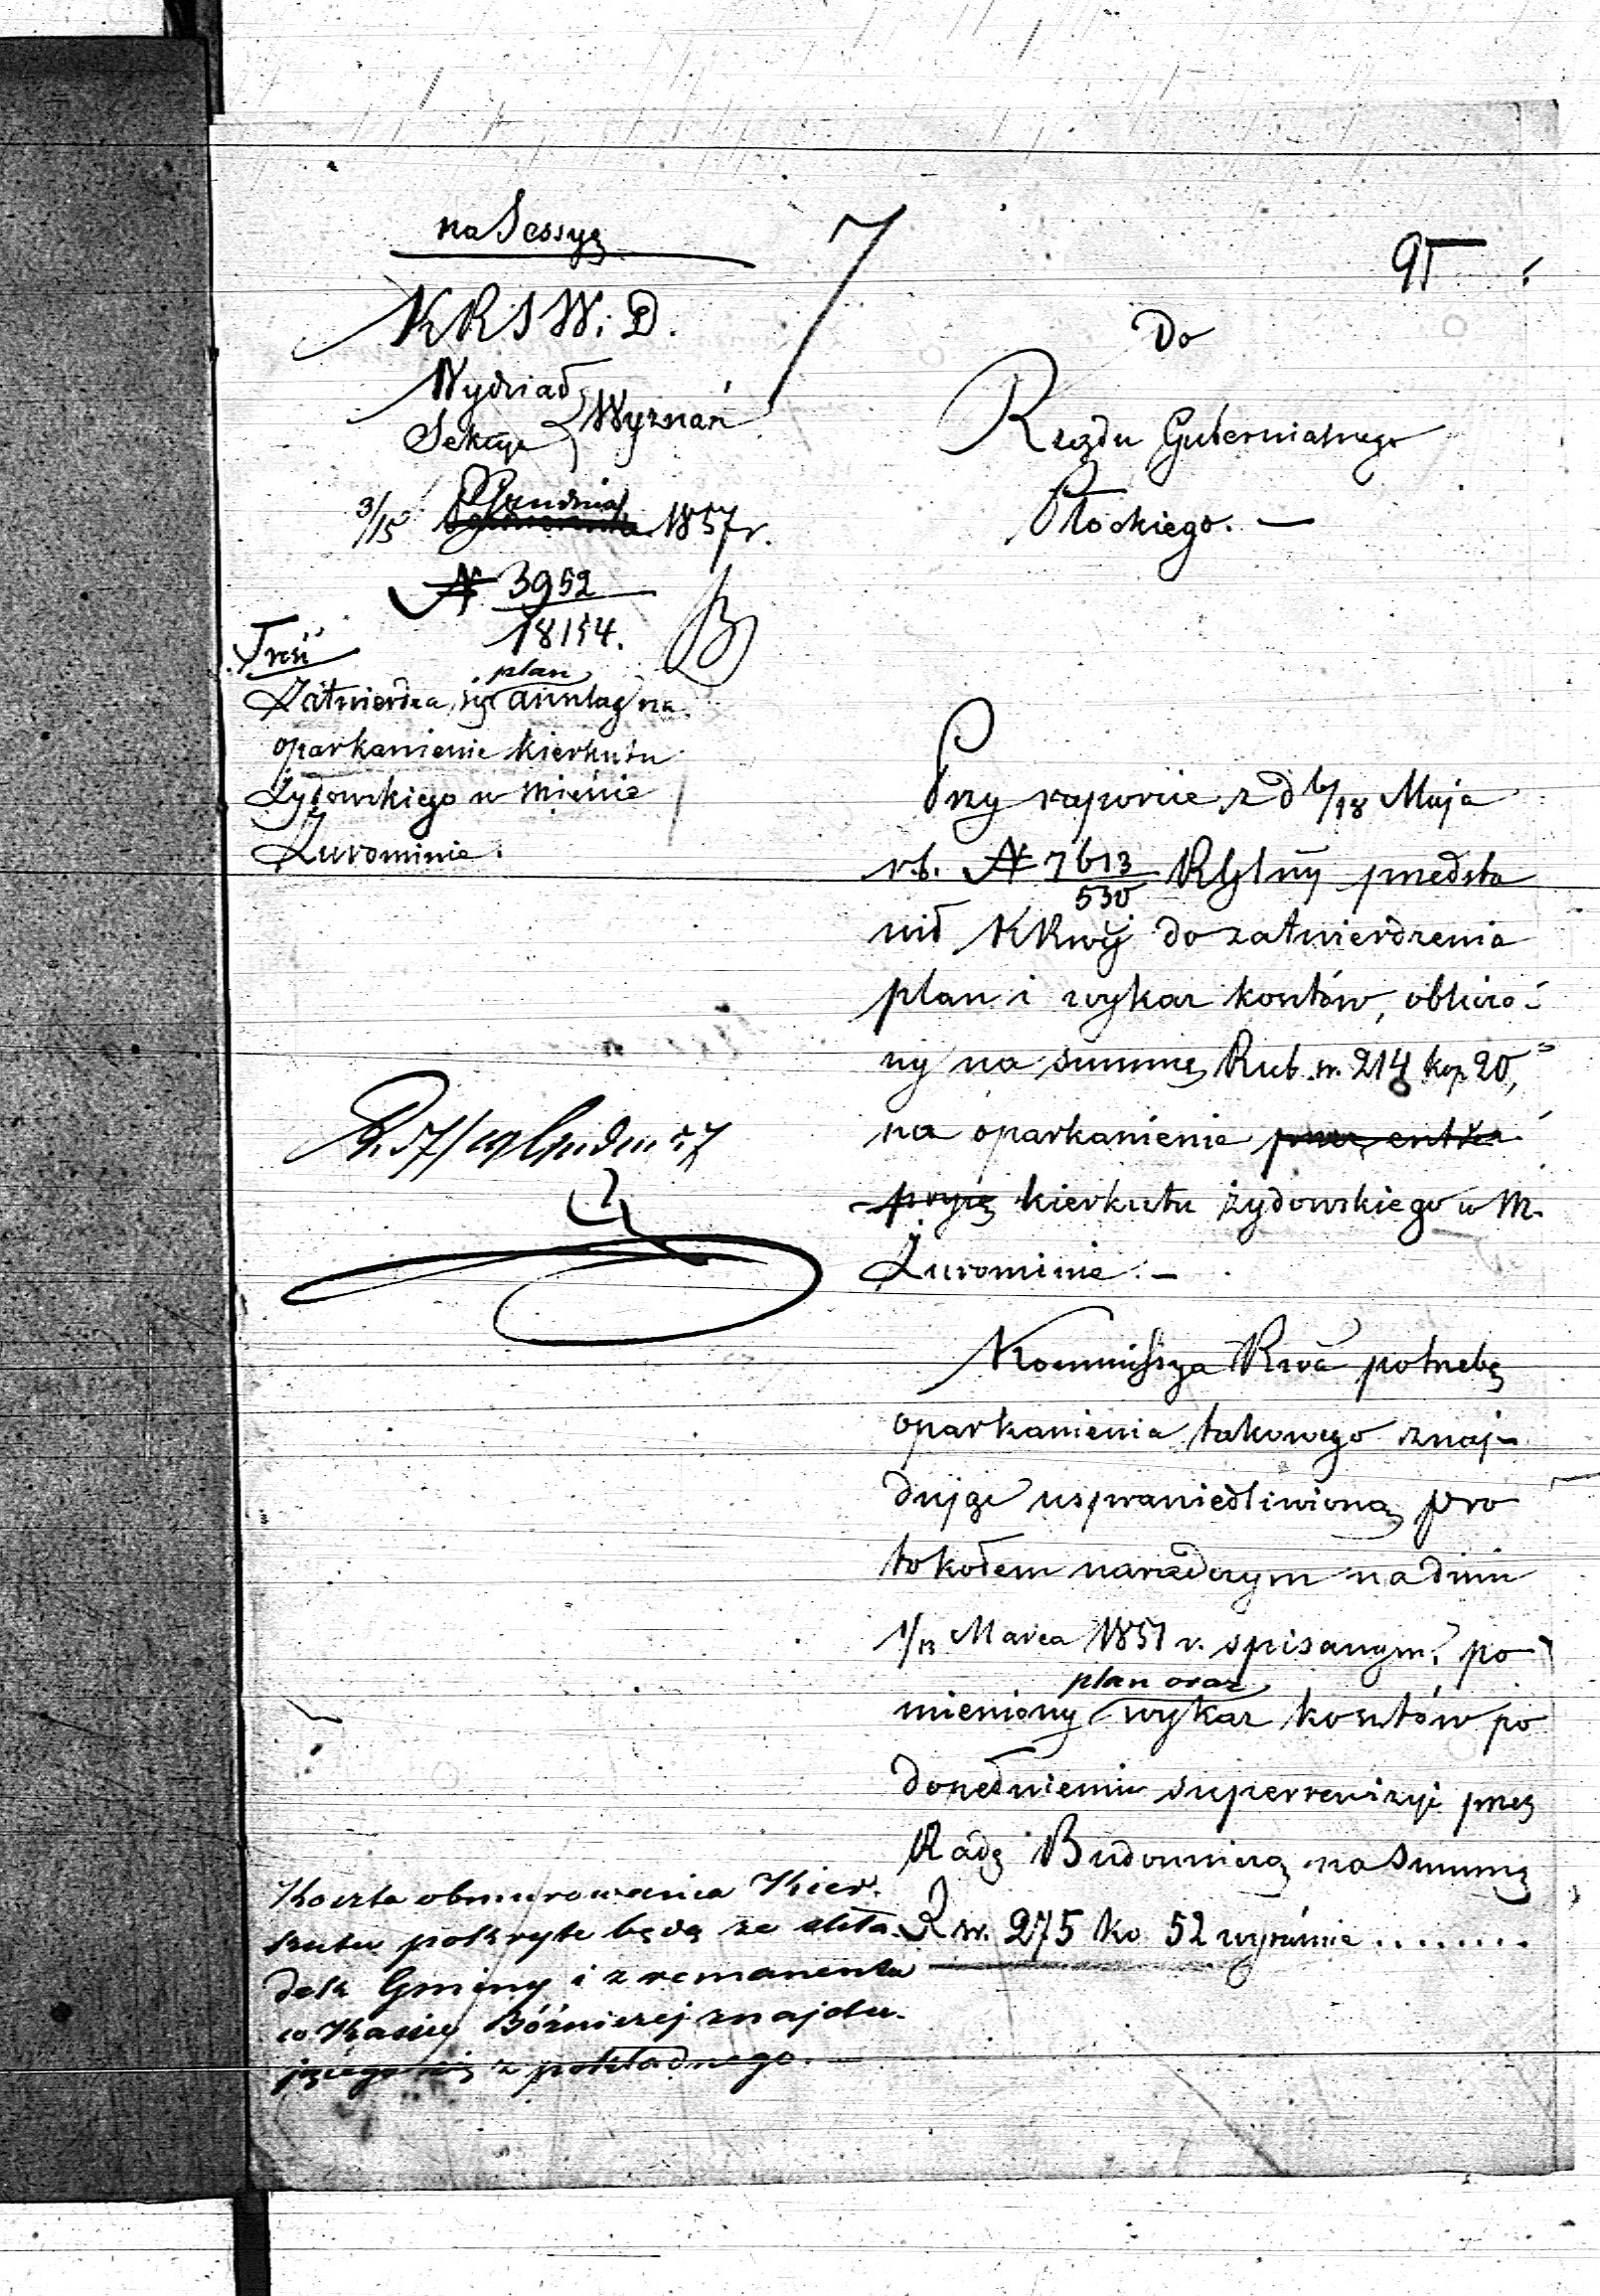 na Sessyą
95
KRSW. i D.
Wydział
Sekcya } Wyznań
3/15 Grudnia 1857 r.
N 3952
18154.
Treść
plan
Zatwierdza się anszlag na
oparkanienie kierkutu
Żydowskiego w mieście
Żurominie.
Do
Rządu Gubernialnego
Płockiego. —
Przy raporcie z d 6/18 Maja
r. b. N 7613/530 RGlny przedsta
wił KRwéj do zatwierdzenia
plan i wykaz kosztów, obliczo-
ny na summę Rub. sr. 214 kop 20,
na oparkanienie przez entre
pryzę kierkutu żydowskiego w m.
Żurominie. —
Kommissya Rwa potrzebę
oparkanienia takowego znaj-
dując usprawiedliwioną pro
tokołem naradczym na dniu
1/13 Marca 1851 r. spisanym, po
plan oraz
mieniony wykaz kosztów po
dopełnieniu superrewizyi przez
Radę Budowniczą na summę
Rsr. 275 ko 52 wyraźnie ........
Koszta obmurowania Kier.
kutu pokryte będą ze skła-
dek Gminy i z remanentu
w Kassie Bóżniczej znajdu-
jącego się z pokładnego. —